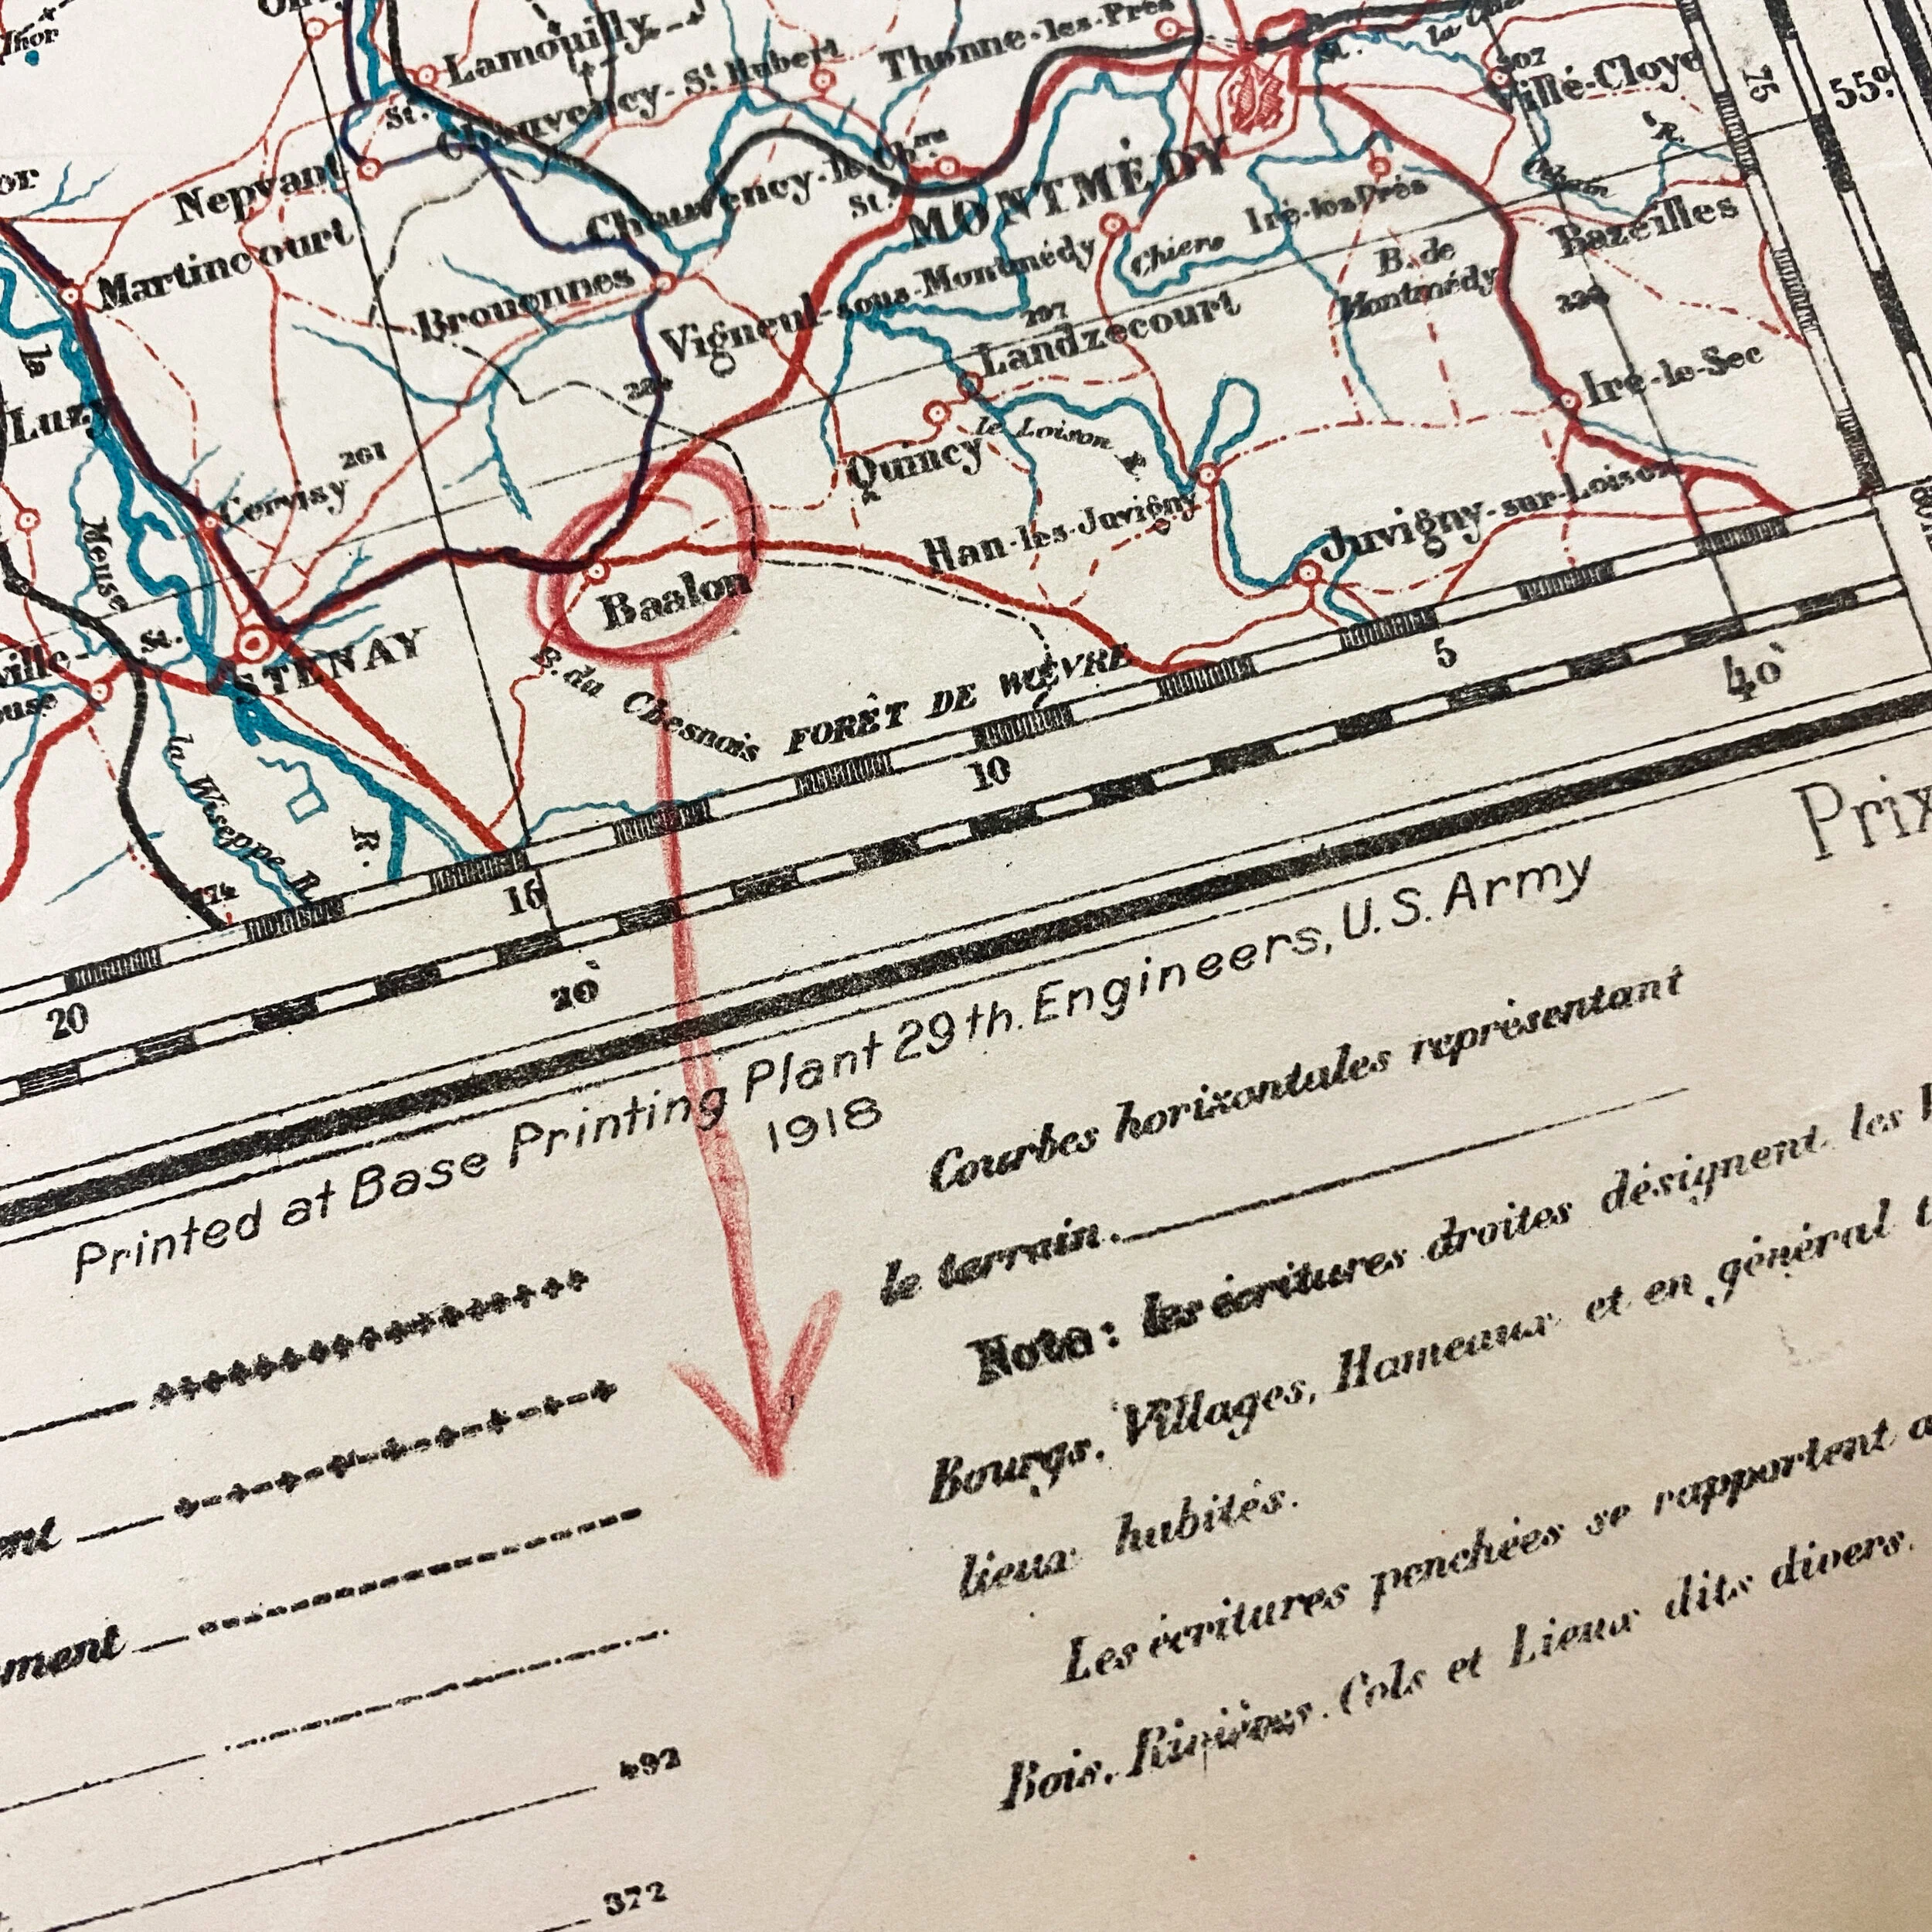 Lamouilly
Chauvency-St Hubert
Thonne-les-Prés
St.
207
Villé-Cloye
75
55º
St.
Nepvant
Chauvency-le-Chau
St.
MONTMÉDY
Iré-les-Prés
Bazeilles
Martincourt
Brouennes
Vigneul-sous-Montmédy
Chiers
B. de
Montmédy
297
Landzecourt
la
Luzy
261
Cervisy
Quincy
le Loison R.
Iré-le-Sec
Meuse
Baalon
Han-les-Juvigny
Juvigny-sur-Loison
St.
STENAY
B. du Chesnois
FORÊT DE WOËVRE
5
40'
10
la Wiseppe R.
R.
174
15
20
20'
Prix
Printed at Base Printing Plant 29th. Engineers, U.S. Army
1918
Courbes horizontales représentant
le terrain.
Nota: les écritures droites désignent les
Bourgs, Villages, Hameaux et en général
lieux habités.
Les écritures penchées se rapportent
Bois, Rivières, Cols et Lieux dits divers.
492
372